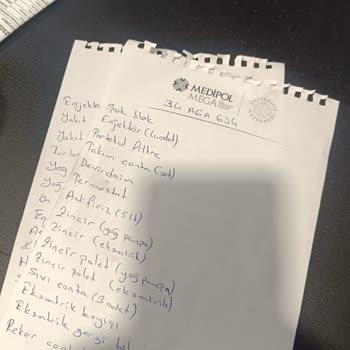 MEDIPOL
MEGA
ÜNİVERSİTE
34 AGA 634
Enjektör Şok blok
Yakıt Enjektör (4 adet)
Yakıt Partekül Filtre
Turbo Takım conta (set)
Yağ Devirdaim
Yağ Termostat
Antifiriz (5 lt)
Zincir (yağ pompa)
Zincir (eksantrik)
Zincir palet (yağ pompa)
Zincir palet (eksantrik)
Sıvı conta (3 adet)
Eksantrik kayışı
Eksantrik gergi
Reker